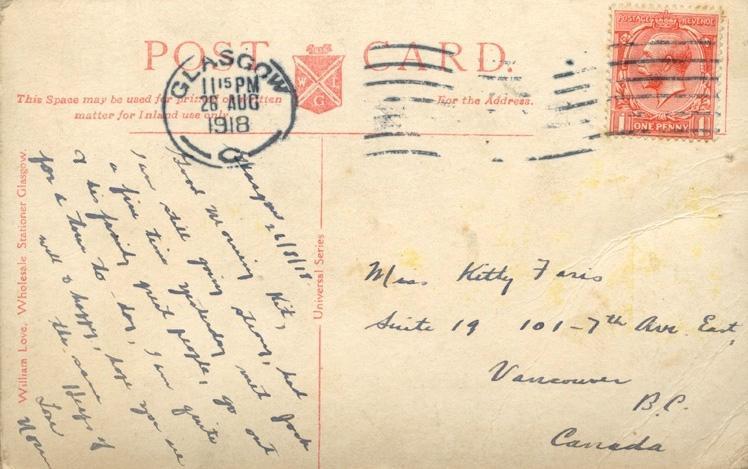 POST CARD.
This Space may be used for printed or written
matter for Inland use only.
For the Address.
GLASGOW
11 15 PM
26 AUG
1918
W G
POSTAGE REVENUE
1 ONE PENNY 1
William Love, Wholesale Stationer Glasgow.
Universal Series
Glasgow 26/8/18.
Good Morning Kit,
I am still going strong, had
a fine time yesterday met Jack
& his family quit people, go out
for a tour to day, I am quite
well & happy, hope you are
the same Heaps of
Love
Mom
Miss Kitty Faris
Suite 19 101-7th Ave East,
Vancouver
B.C.
Canada